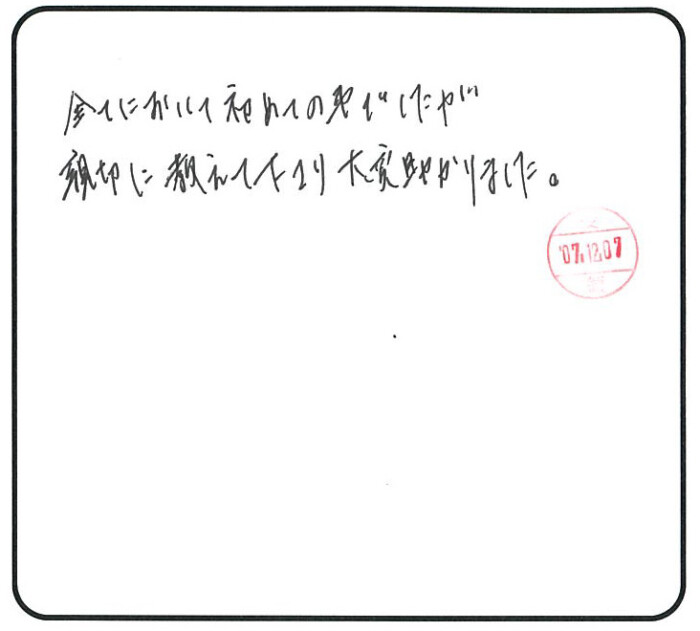 全てにおいて初めての事でしたが
親切に教えて下さり大変助かりました。
'07.12.07